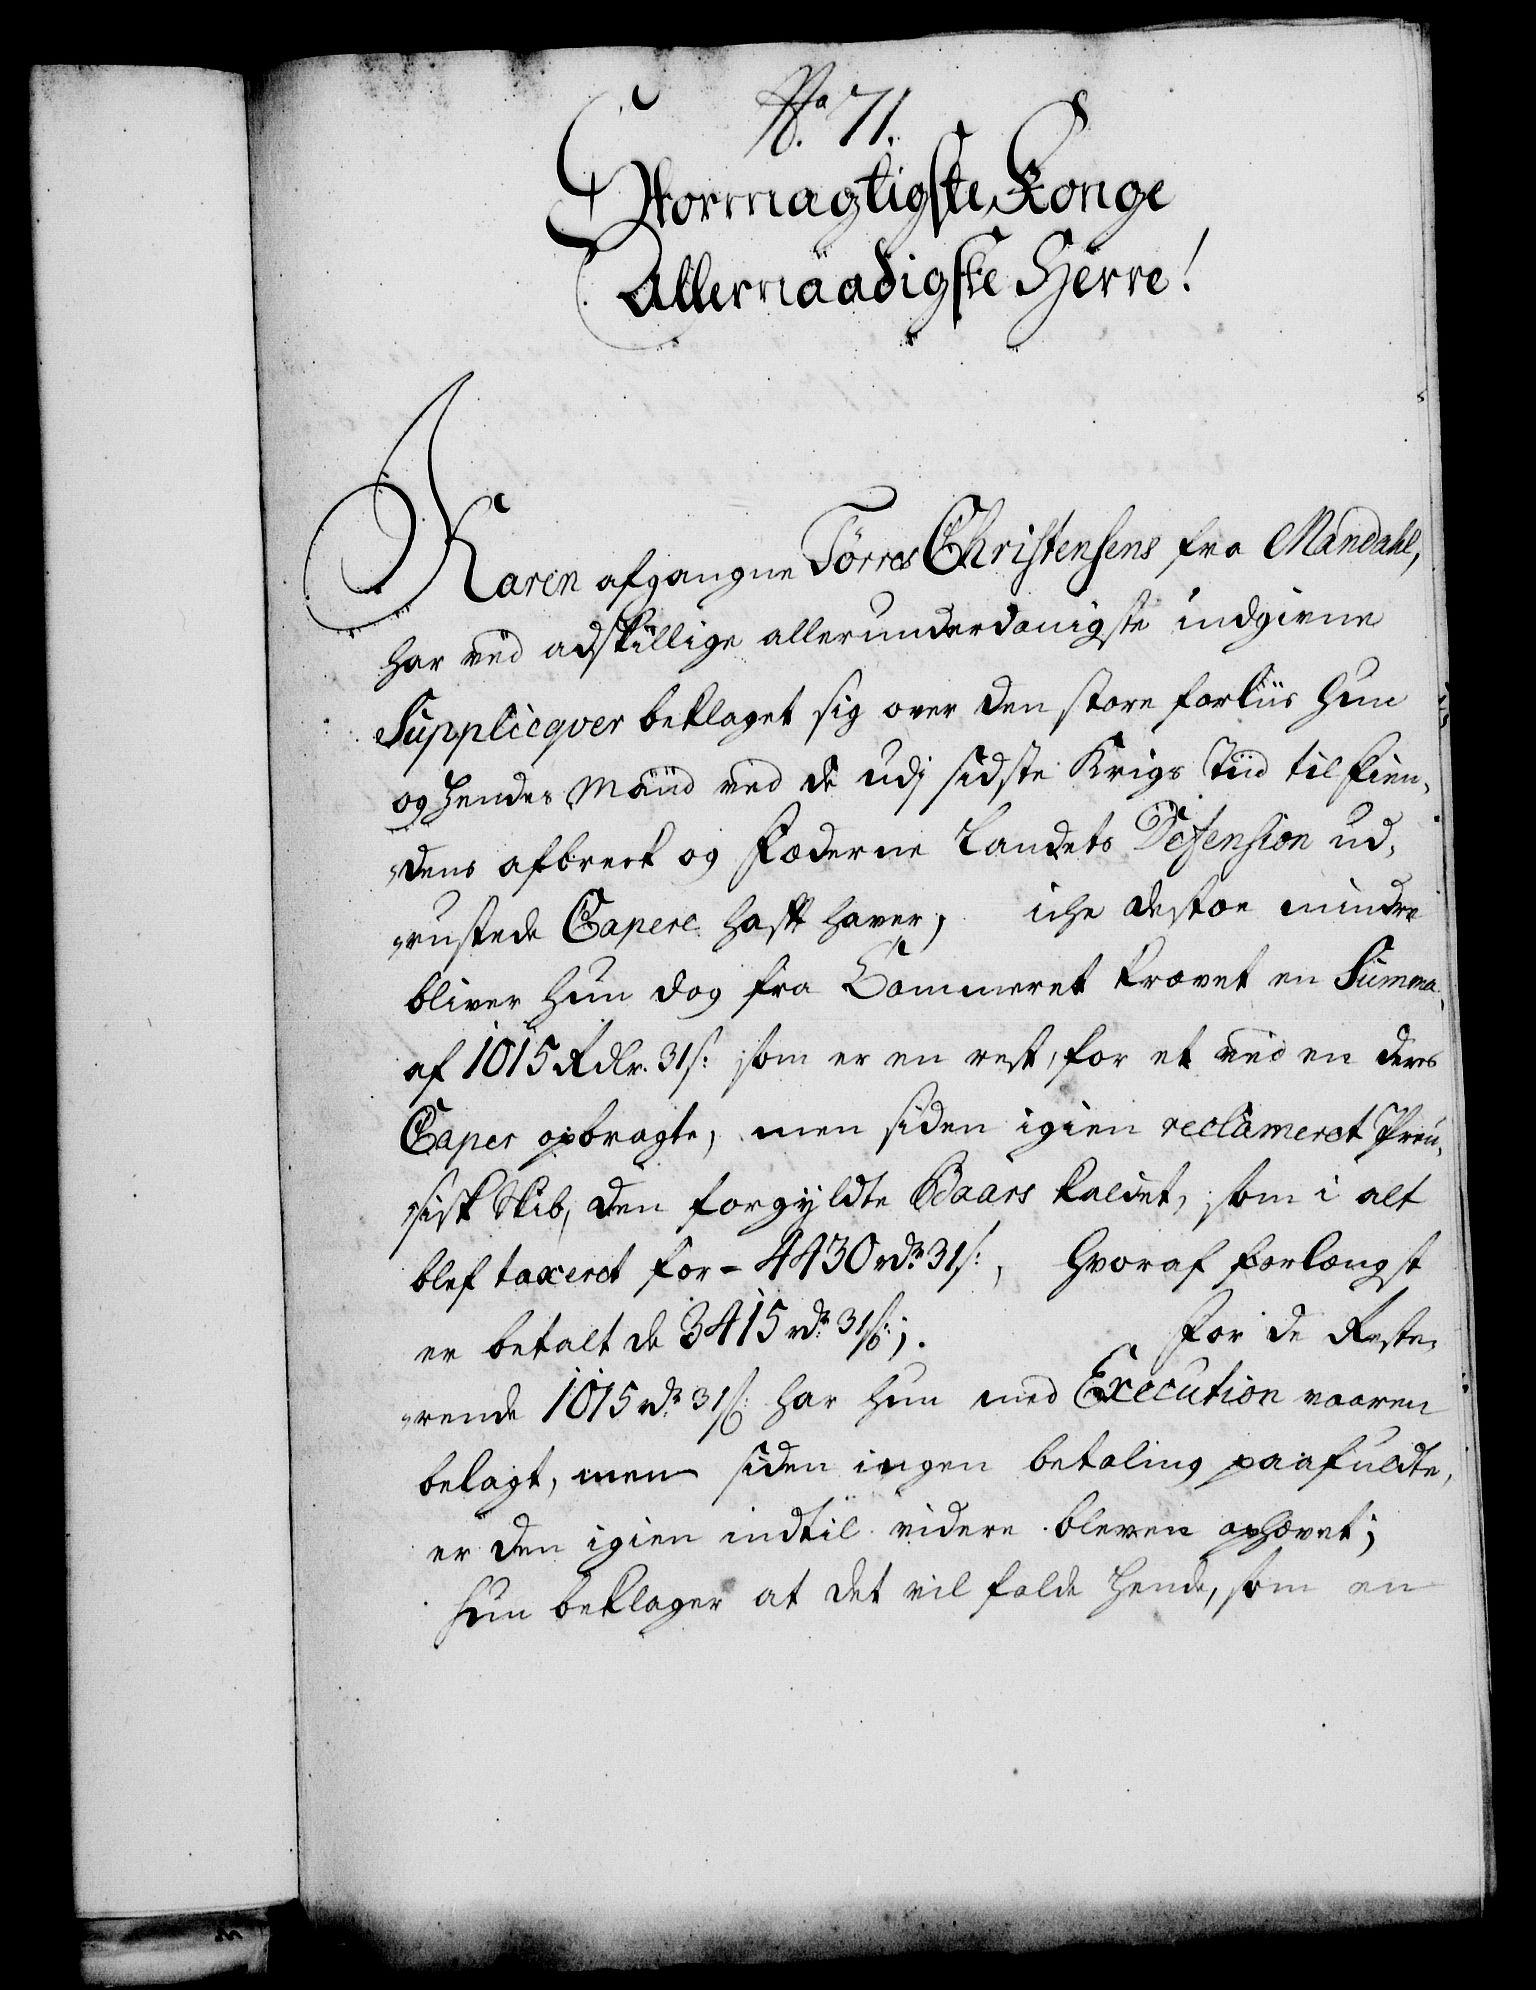 No. 71.
Stormagtigste Konge
Allernaadigste Herre!
Karen afgangne Törres Christensens fra Mandahl,
har ved adskillige allerunderdanigste indgivne
Supplicqver beklaget sig over den store forliis hun
og hendes Mand ved de udj sidste Krigs Tiid til Fien-
dens afbreck og Fæderne Landets Defension ud-
rustede Capere hafft haver, iche destoe mindre
bliver hun dog fra Cammeret krævet en Summa
af 1015 Rdlr. 31 s: som er en rest, for et ved en deres
Caper opbragte, men siden igien reclameret Preu-
sisk Skib, den forgyldte Baars kaldet, som i alt
blef taxeret for - 4430 rdr 31 s:, hvoraf forlængst
er betalt de 3415 rdr 31 s:;. For de Reste-
rende 1015 rdr 31 s: har hun med Execution vaaren
belagt, men siden ingen betaling paafuldte,
er den igien indtil videre bleven ophævet;
hun beklager at det vil falde hende, som en